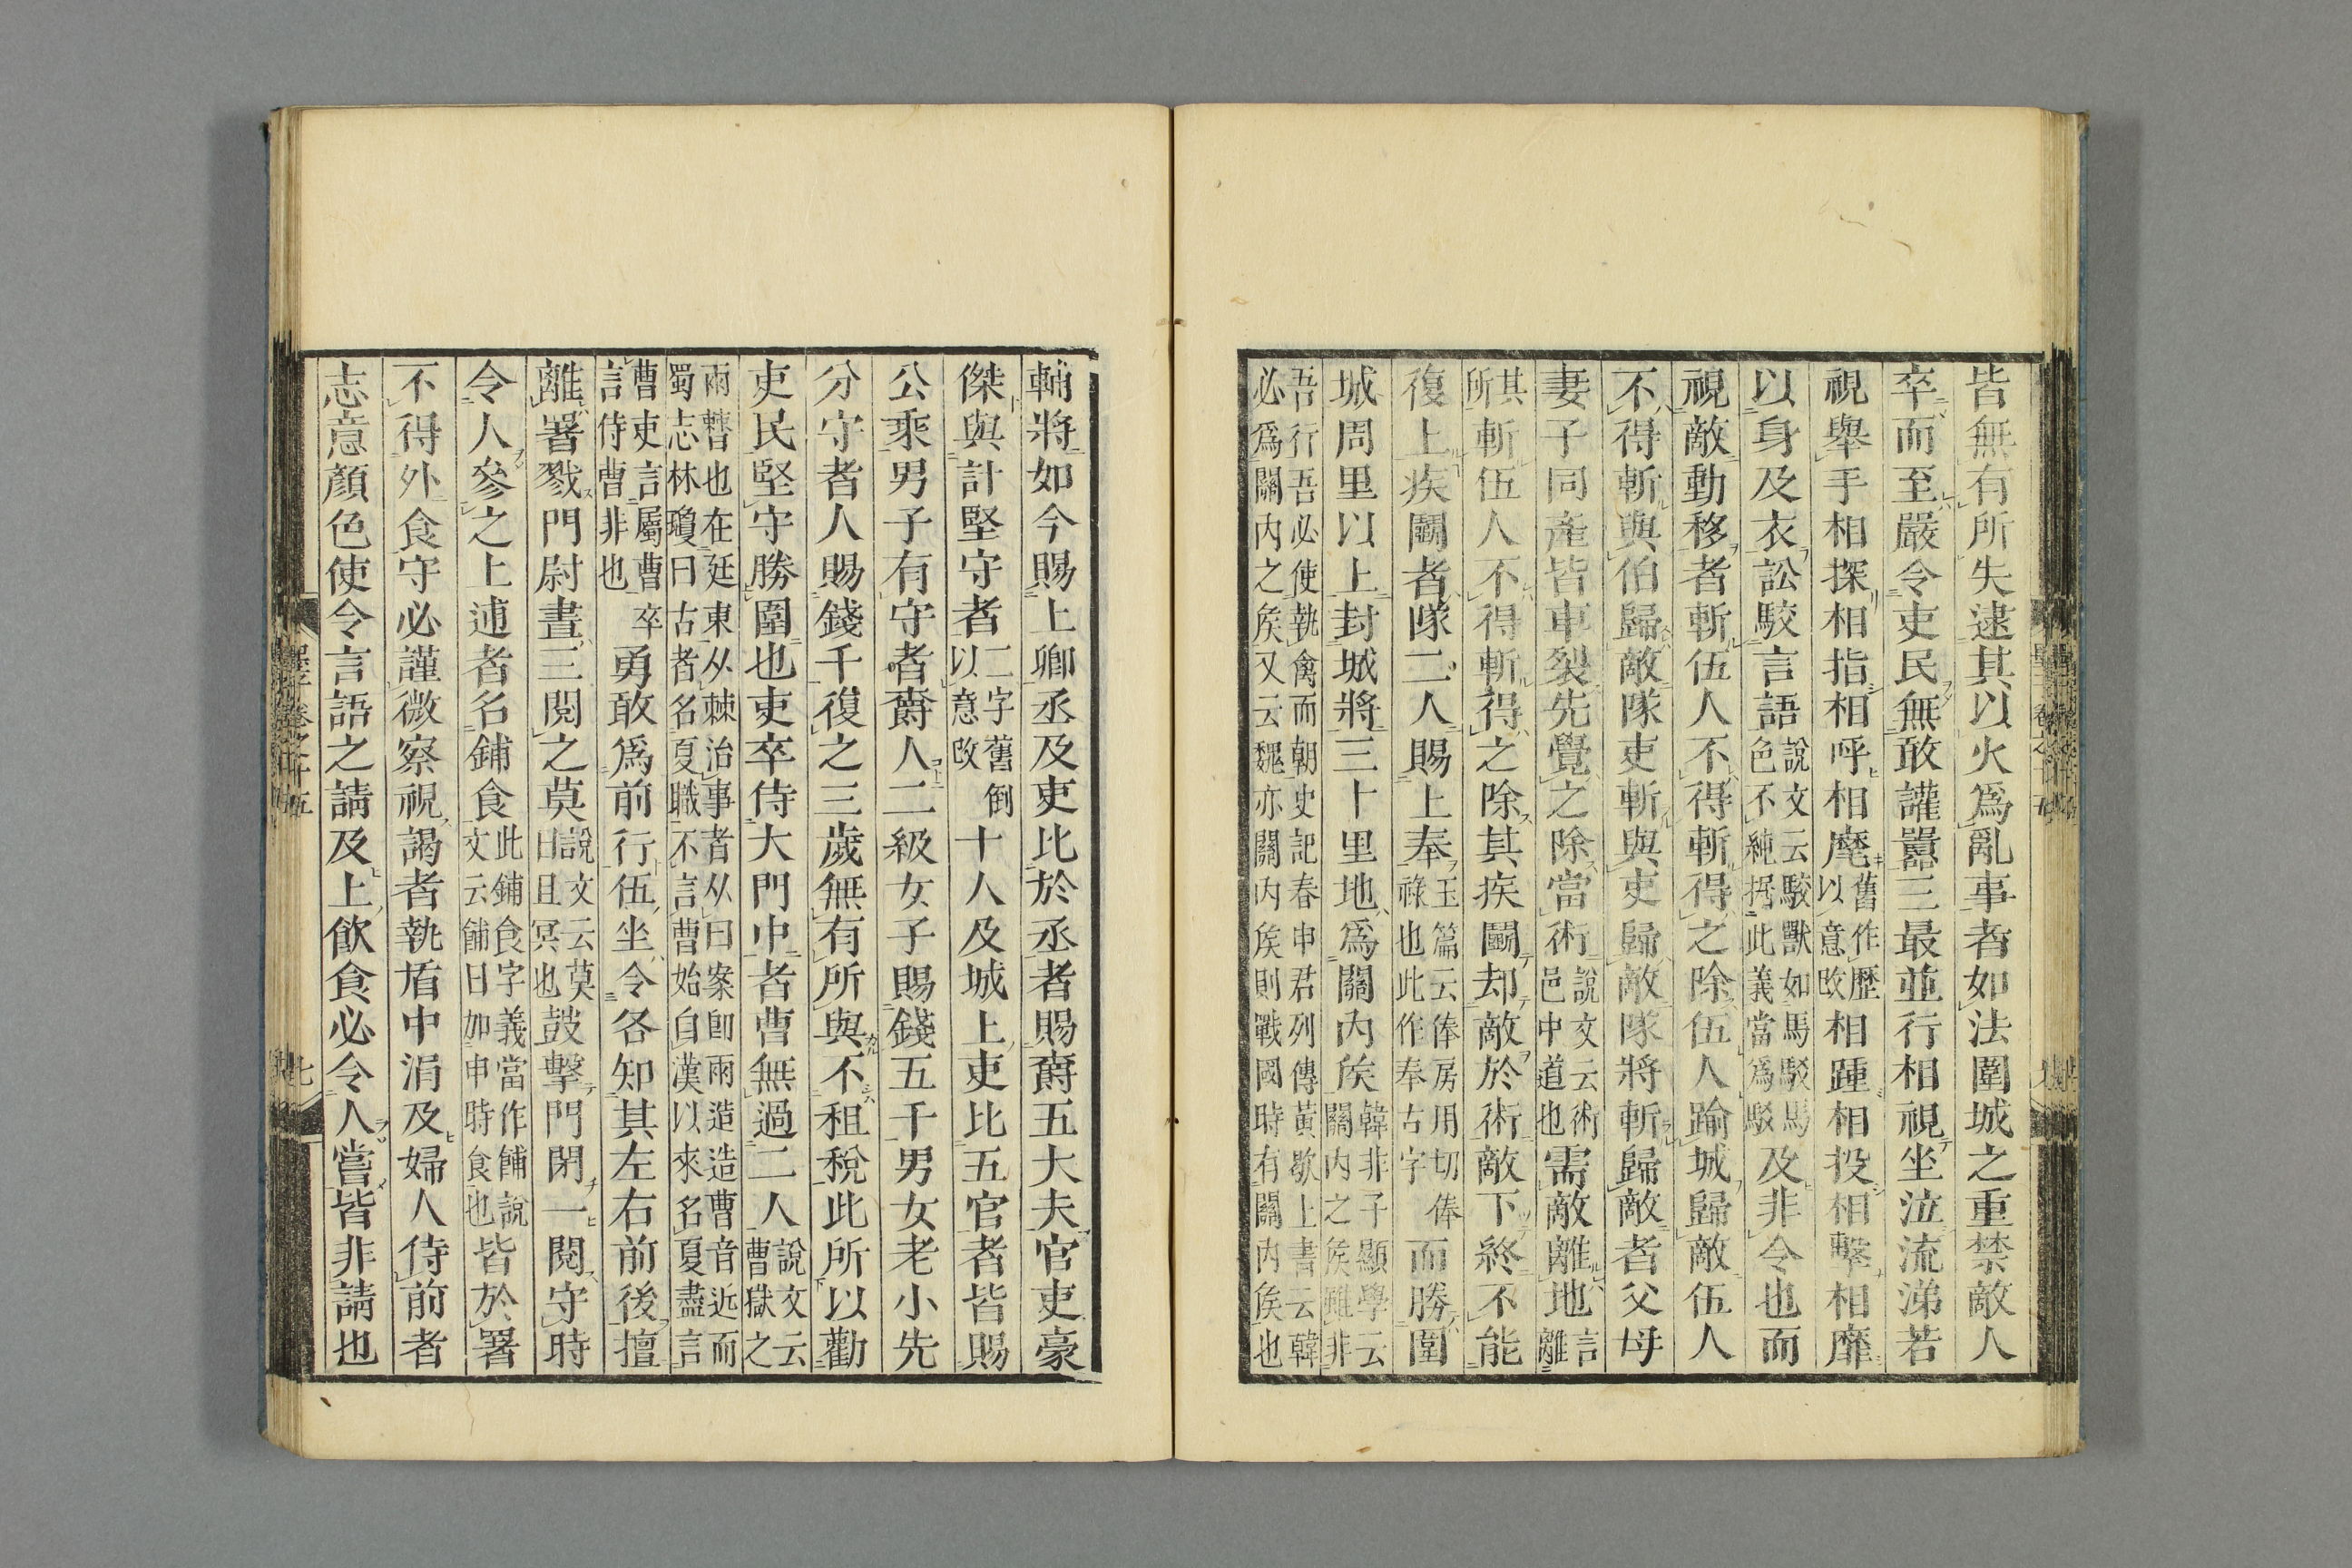 皆無有所失逮其以火爲亂事者如法圍城之重禁敵人
卒而至嚴令吏民無敢讙囂三最並行相視坐泣流涕若
視舉手相探相指相呼相麾舊作歷以意改相踵相投相擊相靡
以身及衣訟駮言語說文云駮獸如馬駁馬色不純据此義當爲駁及非令也而
視敵動移者斬伍人不得斬得之除伍人踰城歸敵伍人
不得斬與伯歸敵隊吏斬與吏歸敵隊將斬歸敵者父母
妻子同產皆車裂先覺之除當術說文云術邑中道也需敵離地言離
其所斬伍人不得斬得之除其疾鬭却敵於術敵下終不能
復上疾鬭者隊二人賜上奉玉篇云俸房用切俸祿也此作奉古字而勝圍
城周里以上封城將三十里地爲關內矦韓非子顯學云關內之矦雖非
吾行吾必使執禽而朝史記春申君列傳黃歇上書云韓
必爲關內之矦又云魏亦關內矦則戰國時有關內矦也
輔將如今賜上卿丞及吏比於丞者賜爵五大夫官吏豪
傑與計堅守者二字舊倒以意改十人及城上吏比五官者皆賜
公乘男子有守者爵人二級女子賜錢五千男女老小先
分守者人賜錢千復之三歲無有所與不租稅此所以勸
吏民堅守勝圍也吏卒侍大門中者曹無過二人說文云曹獄之
兩曹也在廷東从棘治事者从曰案卽兩造造曹音近而
蜀志林瓊曰古者名夏職不言曹始自漢以來名夏盡言
曹吏言屬曹卒言侍曹非也勇敢爲前行伍坐令各知其左右前後擅
離署戮門尉晝三閱之莫說文云莫日且冥也鼓擊門閉一閱守時
令人參之上逋者名鋪食此鋪食字義當作餔說文云餔日加申時食也皆於署
不得外食守必謹微察視謁者執盾中涓及婦人侍前者
志意顏色使令言語之請及上飲食必令人嘗皆非請也